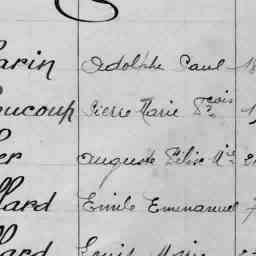 arin Adolphe Paul 18
oucoup Pierre Marie Fcois 1
er Auguste Félix
llard Emile Emmanuel 7
llard Louis Marie